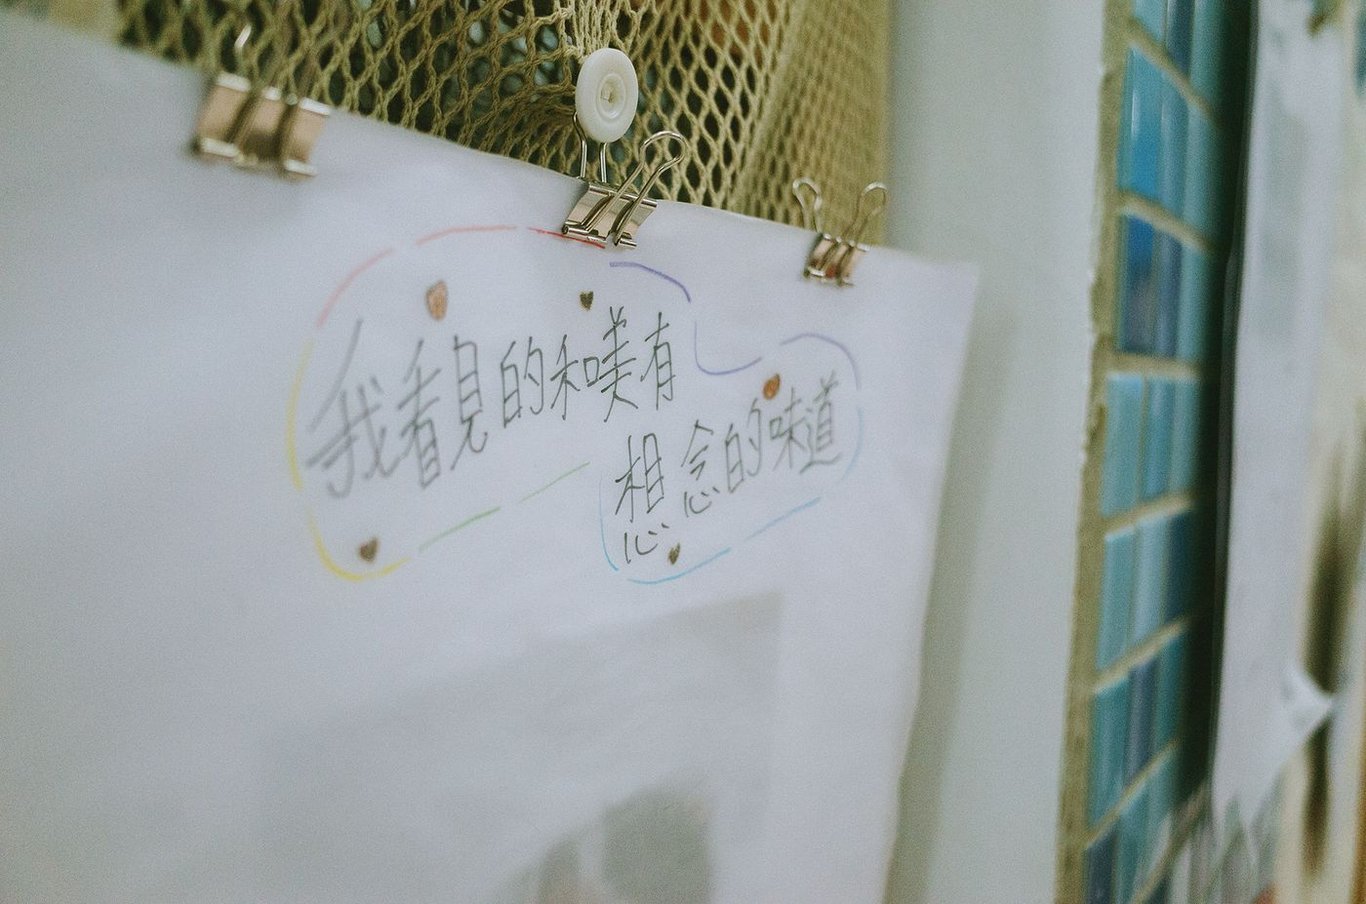 我看見的和噗有
想念的味道